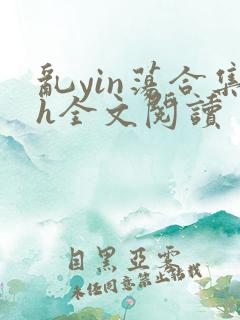 亂yin蕩合集
h全文閱讀
目黑亞雾
未经同意禁止转载